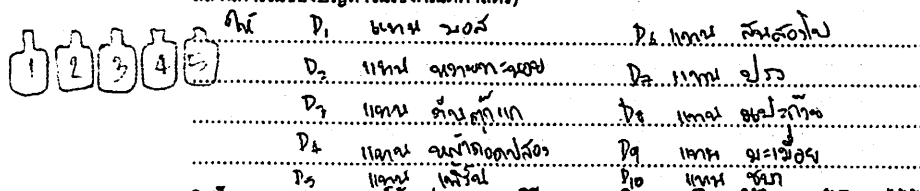 1 2 3 4 5
ให้ D₁ แทน มอส D₆ แทน สนสองใบ
D₂ แทน หวายทะนอย D₇ แทน ปรง
D₃ แทน ตีนตุ๊กแก D₈ แทน แปะก๊วย
D₄ แทน หญ้าถอดปล้อง D₉ แทน มะเมื่อย
D₅ แทน เฟิร์น D₁₀ แทน ชบา